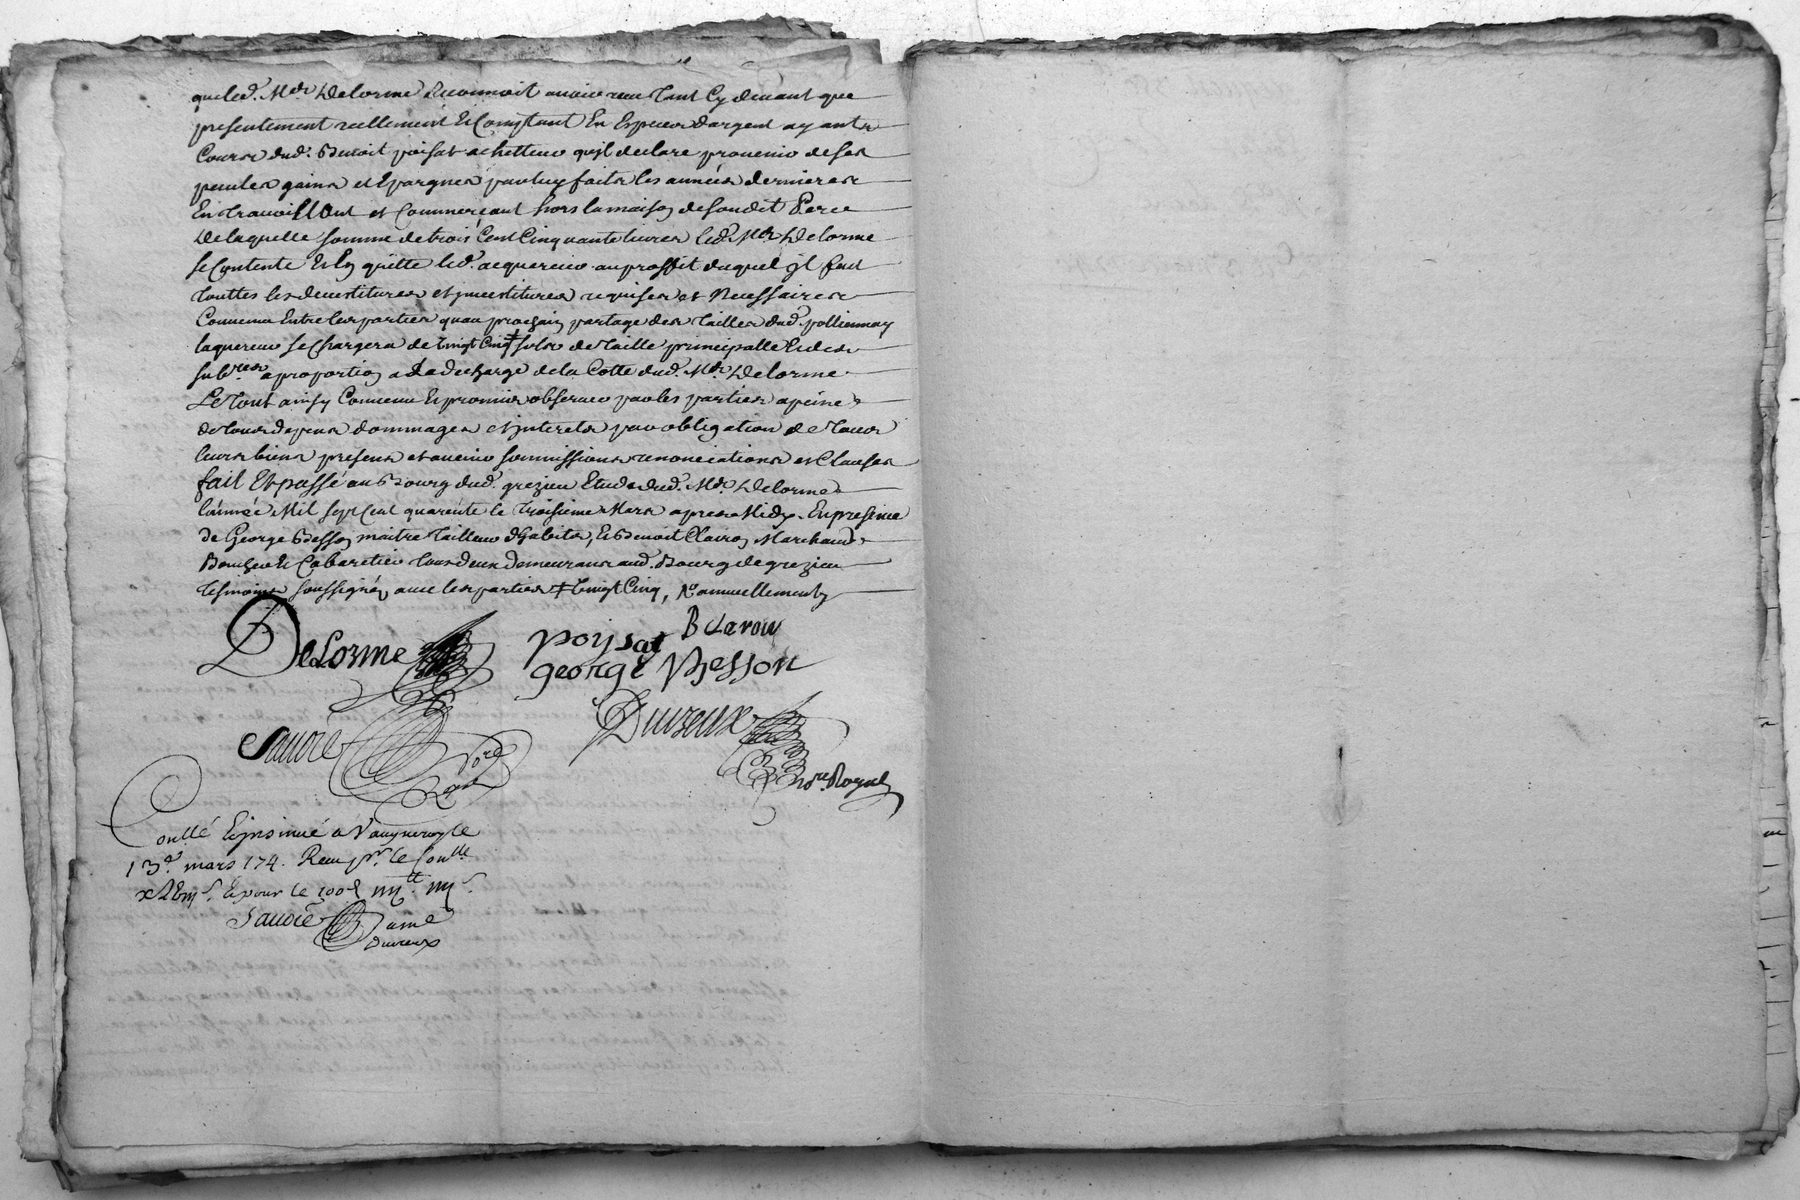 que led. Mtr Delorme Reconnoit avoir reçu tant Cy devant que
presentement reellement Et Comptant En Especes dargent ayants
Cours dud. Benoit poisat achetteur qu'jl declare provenir de ses
peines gains et Epargnes par luy faits les années dernieres
En travaillant et Commerçant hors la maison de sondit Pere
De laquelle somme de trois Cent Cinquante livres led. Mtr Delorme
se Contente Et En quitte led. acquereur au proffit duquel jl fait
touttes les devestitures et jnvestitures requises et Necessaires
Convenu Entre les parties quau prochain partage des tailles dud. pollionnay
lacquereur se Chargera de vingt Cinq + sols de taille principalle Et des
sub.res a proportion a La decharge de la Cotte dud. Mtr Delorme
Le tout ainsy Convenu Et promis observer par les parties a peine
de tous depens dommages et jnterets par obligation de tous
leurs biens presens et avenir soumissions renonciations et Clauses
fait Et passé au Bourg dud. grezieu Etude dud. Mtr Delorme
l'année Mil sept Cent quarente le troisieme Mars apres Midy. En presence
de George Besson maitre tailleur d'habits, Et Benoit Claron Marchand
Boucher Et Cabaretier tous deux demeurans aud. Bourg de grezieu
tesmoins soussignés avec les parties + vingt Cinq, annuellement
DeLorme
poysat
B Claron
george Besson
Sauvié
Nore
Duvreux
nore. Royal
Conllé Et jnsinué a Vaugneray le
13e. mars 174. Reçu pr. le Conlle
Et pour le 100e
Sauvié
Duvreux